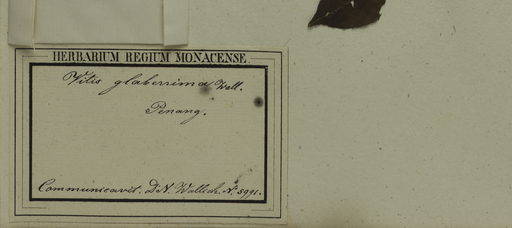 HERBARIUM REGIUM MONACENSE.
Vitis glaberrima Wall.
Penang.
Communicavit. D. N. Wallich. N. 5991.